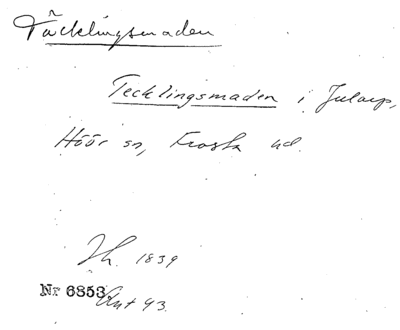 Täcklingsmaden
Tecklingsmaden i Jularp,
Höör sn, Frosta hd.
Jh. 1839
Nr 6853 Akt 43.